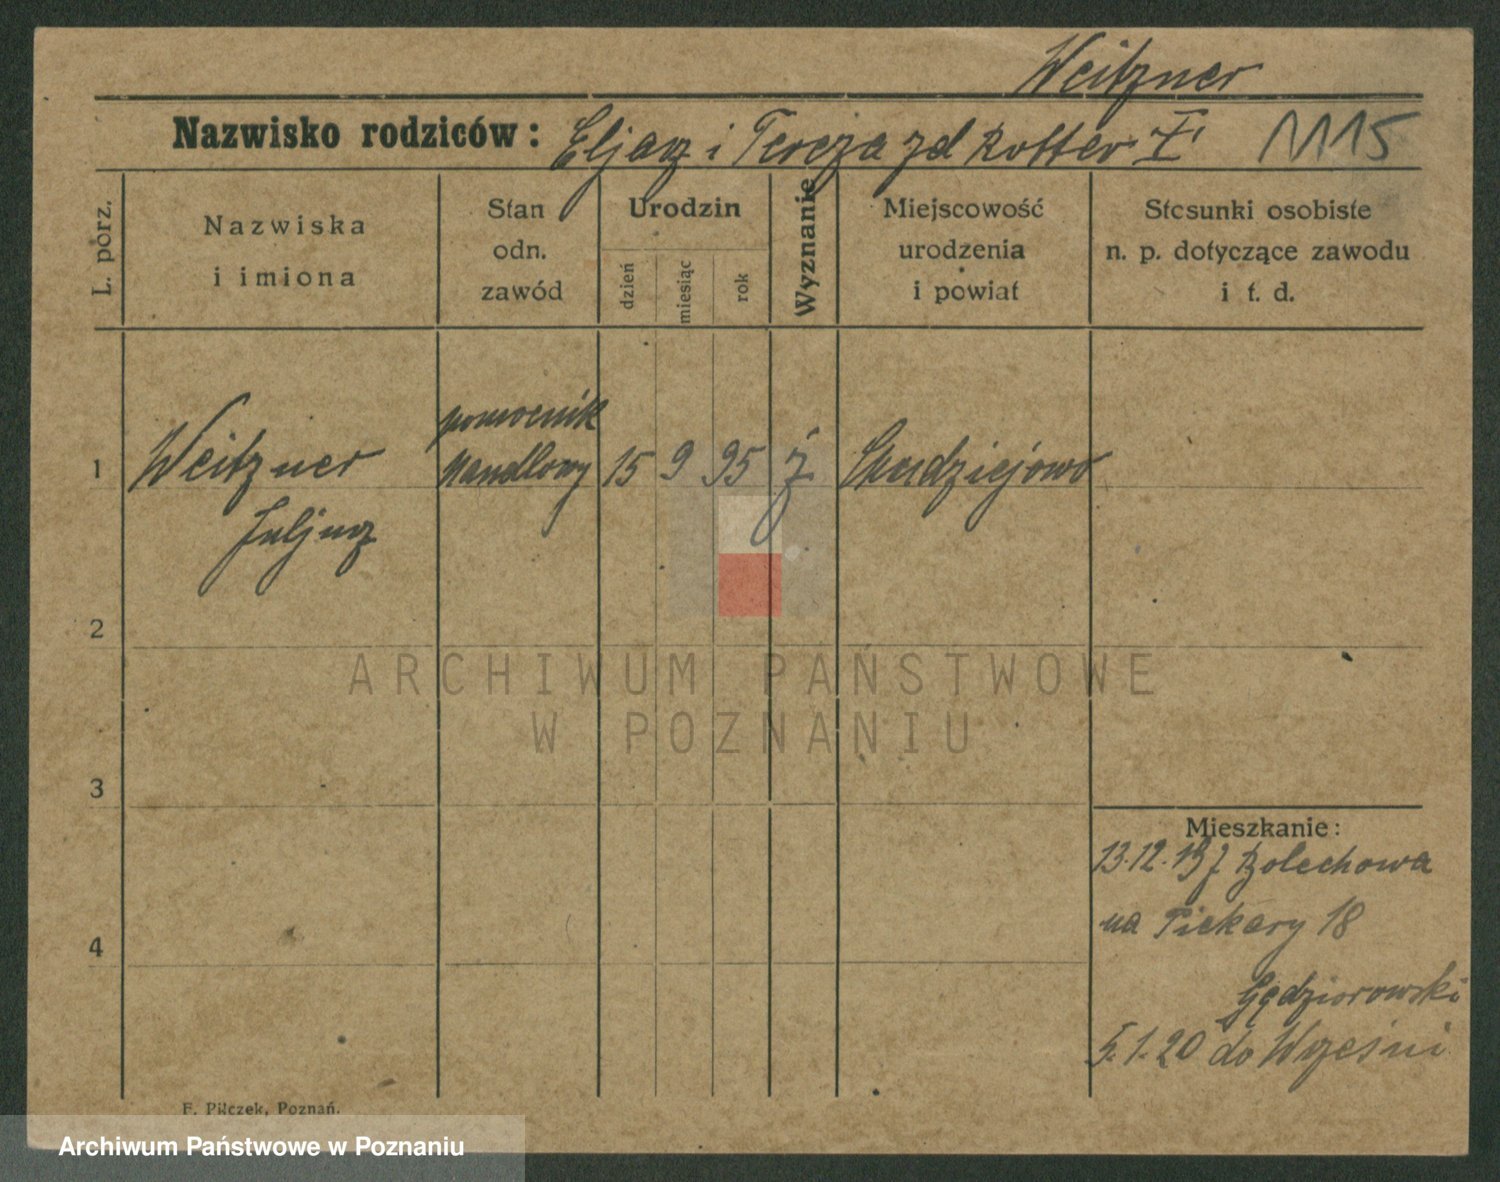 Weitzner
Nazwisko rodziców: Eljasz i Tereza zd Rotter Ż 1115
L. porz.
Nazwiska
i imiona
Stan
odn.
zawód
Urodzin
dzień
miesiąc
rok
Wyznanie
Miejscowość
urodzenia
i powiat
Stosunki osobiste
n. p. dotyczące zawodu
i t. d.
pomocnik
1 Weitzner handlowy 15 9 95 ż
Juljusz
2
ARCHIWUM PAŃSTWOWE
W POZNANIU
3
Mieszkanie:
13.12.19 z Bolechowa
na Piekary 18
4
Gędziorowski
5.1.20 do Wrześni
F. Pilczek, Poznań.
Archiwum Państwowe w Poznaniu